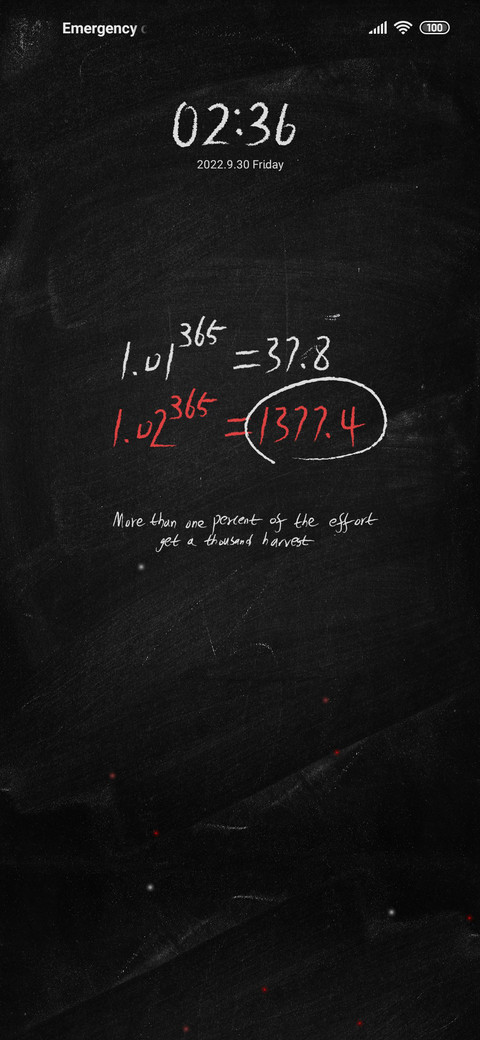 Emergency
100
02:36
2022.9.30 Friday
1.01³⁶⁵ =37.8
1.02³⁶⁵ =1377.4
More than one percent of the effort
get a thousand harvest